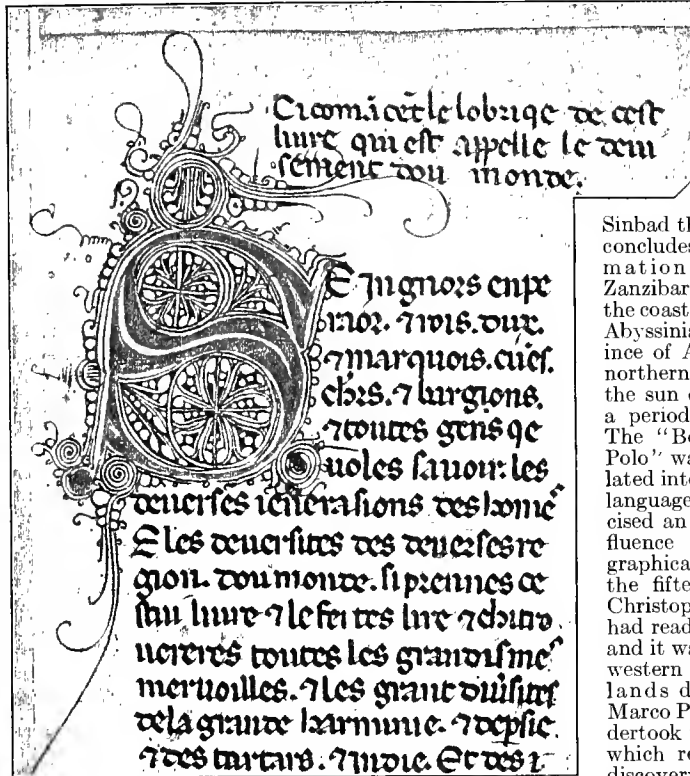 Ci comācet le lobriqe de cest
liure qui est appelle le deui
sement dou monde.
SEingnors enpe
raor. ⁊ rois. dux.
⁊ marquois. cūes.
chrs. ⁊ burgions.
⁊ toutes gens qe
uoles sauoir. les
deuerses ienerasions des home͂s
E les deuersites des deuerses re
gion. dou monde. si prennes ce
stui liure ⁊ le feites lire ⁊ chi tro
uereres toutes les grandismes
meruoilles. ⁊ les grant diuisites
de la grande harminie. ⁊ de psie.
⁊ des tartars. ⁊ indie. Et des i
Sinbad th
concludes
mation
Zanzibar
the coast
Abyssinia
ince of A
northern
the sun
a period
The "Bo
Polo" wa
lated into
language
cised an
fluence
graphica
the fifte
Christop
had read
and it wa
western
lands d
Marco P
dertook
which re
discover